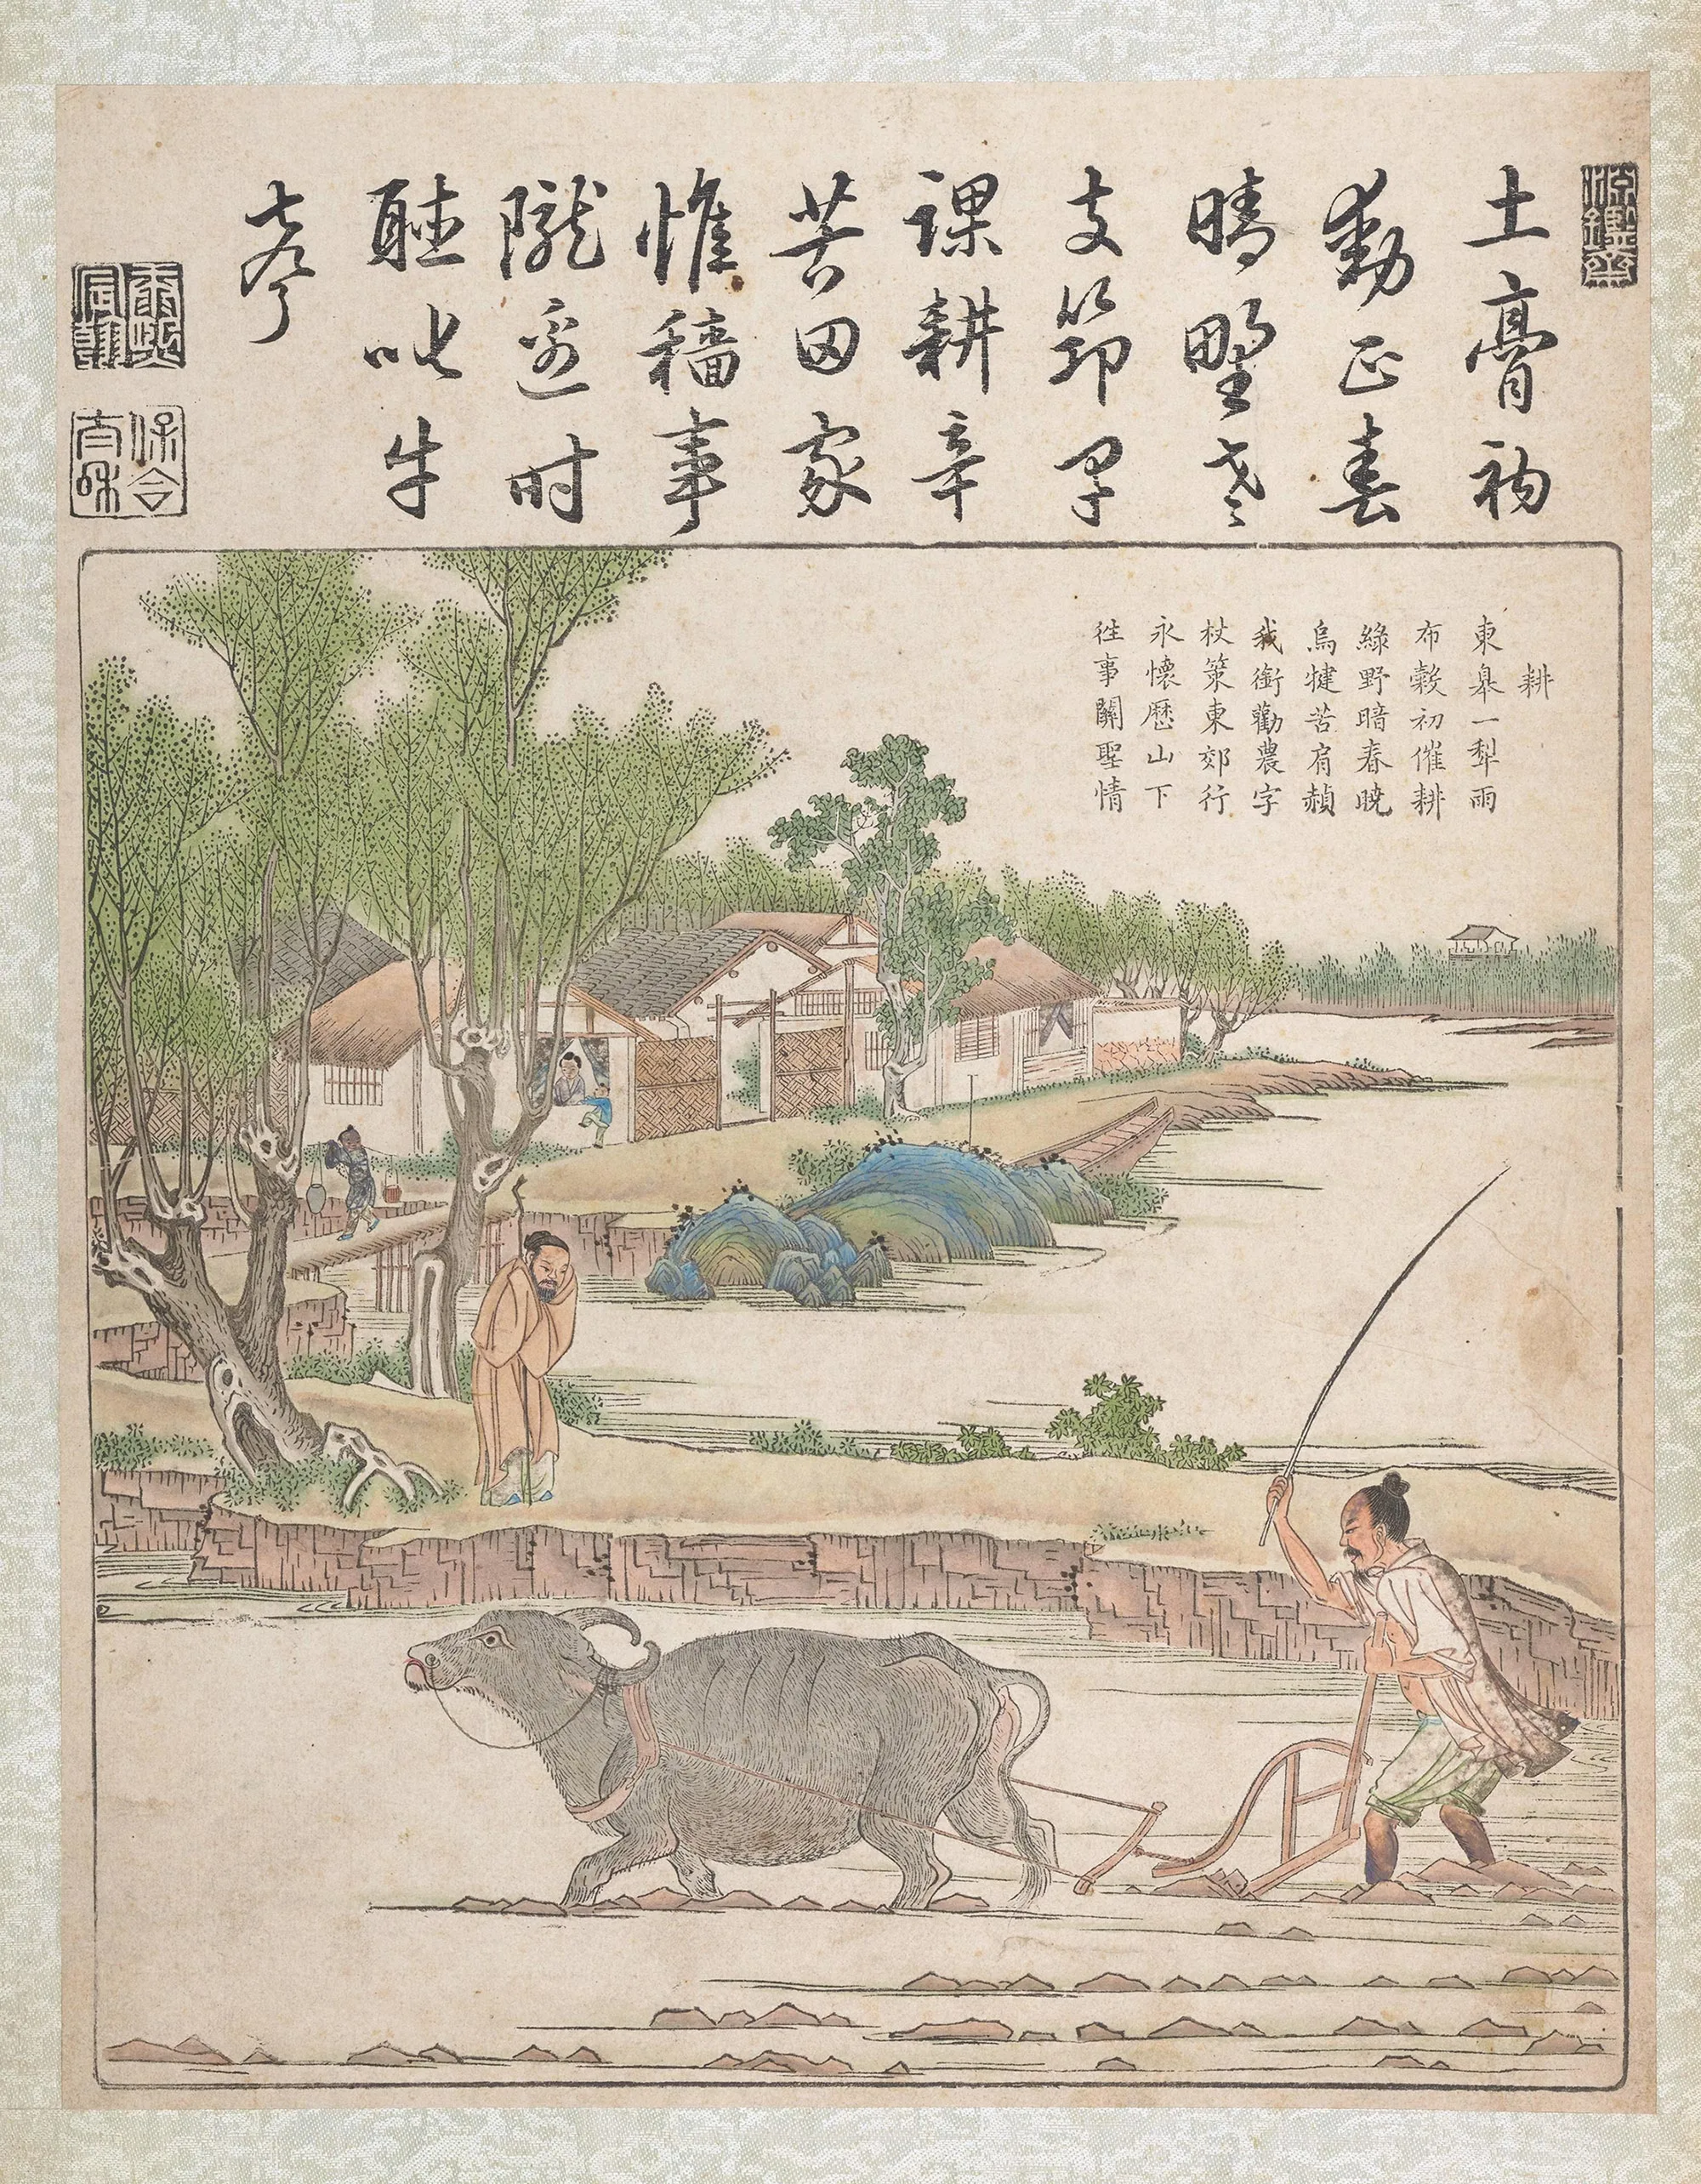 淵鑒齋
土膏初
動正春
晴野老
支筇早
課耕辛
苦田家
惟穡事
隴邊時
聽叱牛
聲
康熙宸翰
保合太和
耕
東皐一犁雨
布穀初催耕
綠野暗春曉
烏犍苦肩赬
我銜勸農字
杖策東郊行
永懷歷山下
往事關聖情